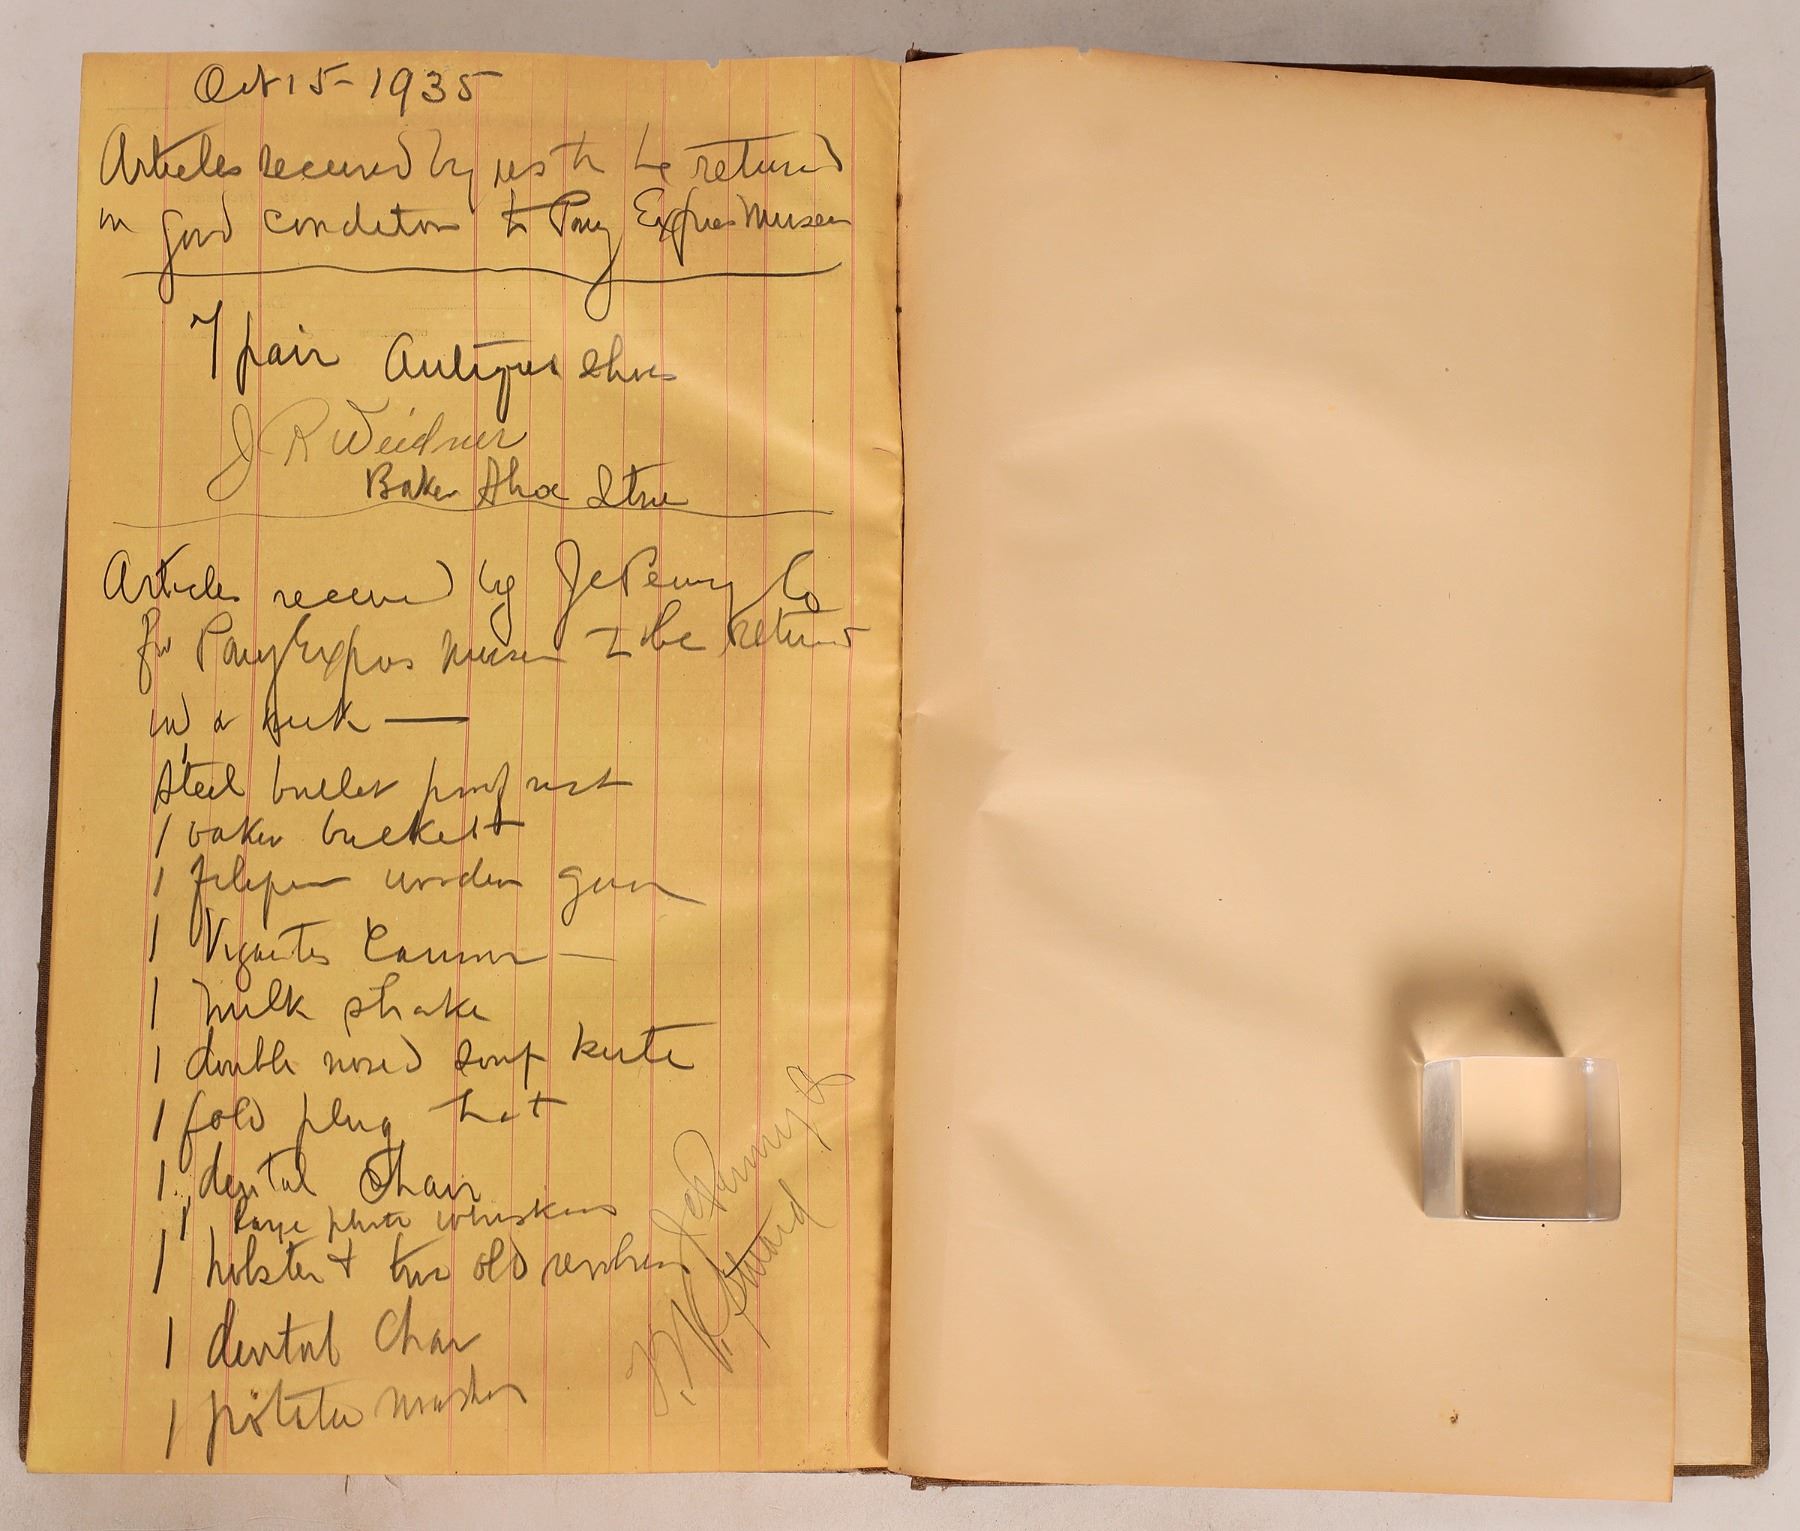 Oct 15 - 1935
Articles received by us to be returned
in good condition to Pony Express Museum
7 pair Antique Shoes
J R Weidner
Baker Shoe Store
Articles received by JcPenny Co
for Pony Express Museum to be returned
in a week —
Steel bullet proof vest
1 oaken buckett
1 wooden gun
1 Vigantes Cannon —
1 milk shake
1 double nosed soup
1 fold plug hat
1 dental Chair
1 large photo whiskers
1 holster & two old revolvers
1 dental Chair
1 potatoe masher
JcPenny Co
Steward